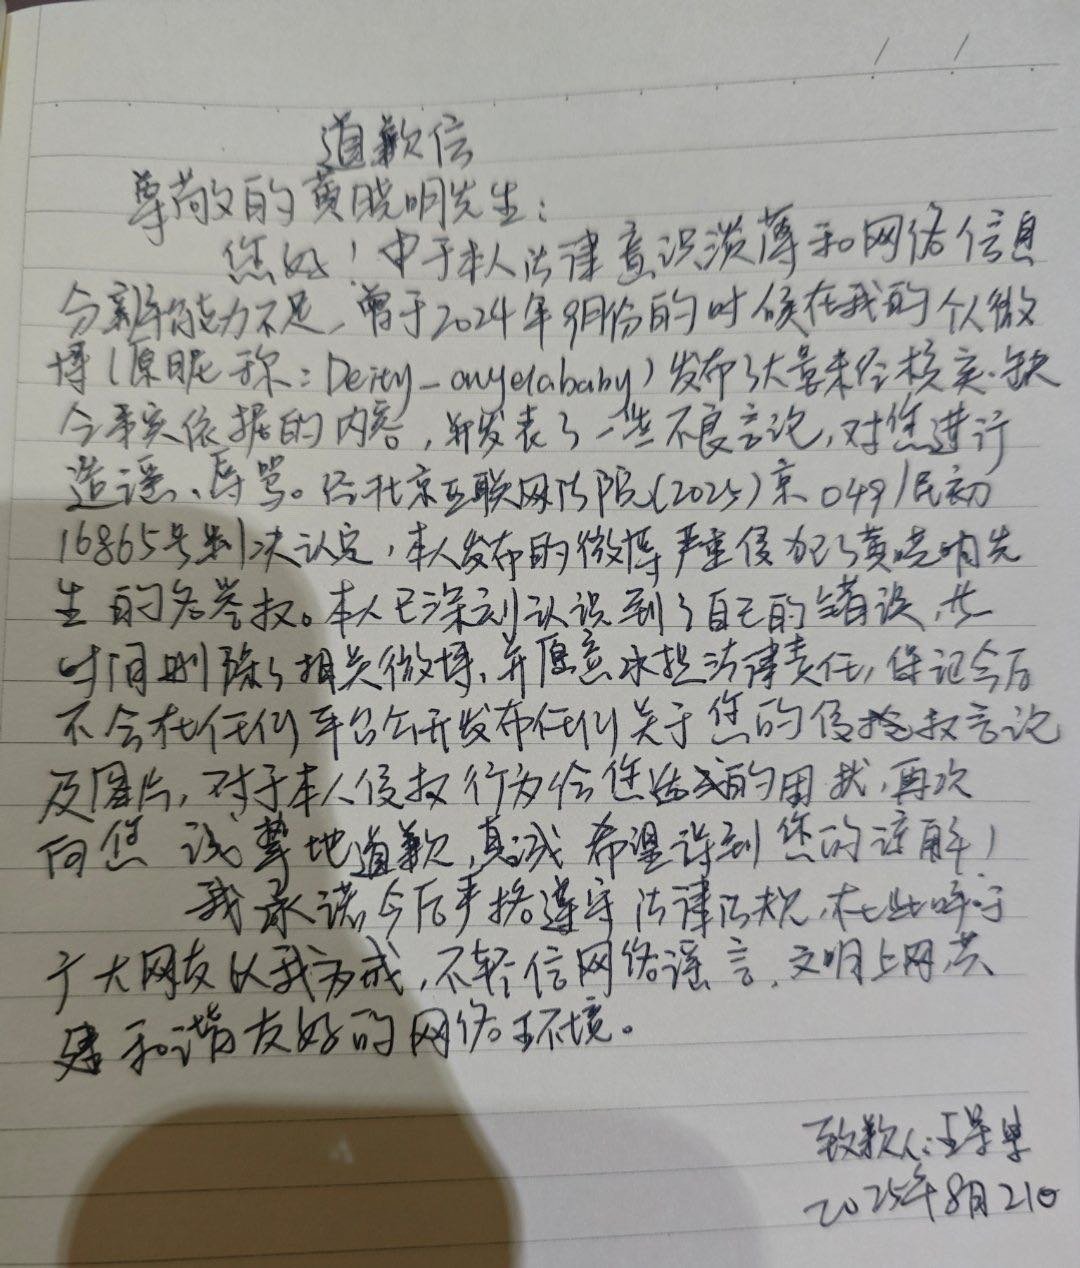 道歉信
尊敬的黄晓明先生：
您好！由于本人法律意识淡薄和网络信息
分辨能力不足，曾于2024年9月份的时候在我的个人微
博（原昵称：Deity_onyelababy）发布了大量未经核实、缺
今事实依据的内容，并发表了一些不良言论，对您进行
造谣、辱骂。经北京互联网法院（2025）京0491民初
16865号判决认定，本人发布的微博严重侵犯了黄晓明先
生的名誉权。本人已深刻认识到了自己的错误，
时间删除了相关微博，并愿意承担法律责任，保证今后
不会在任何平台公开发布任何关于您的侵权言论
及图片，对于本人侵权行为给您造成的困扰，再次
向您诚挚地道歉，真诚希望得到您的谅解！
我承诺今后严格遵守法律法规，在此呼吁
广大网友以我为戒，不轻信网络谣言，文明上网，共
建和谐友好的网络环境。
致歉人：王
2025年8月21日